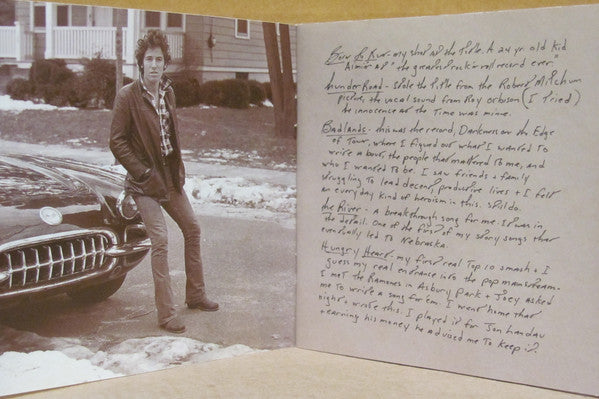 Born to Run - my shot at the title. A 24 yr. old kid
aimin' at "the greatest rock'n roll record ever."
Thunder Road - Stole the title from the Robert Mitchum
picture, the vocal sound from Roy Orbison (I tried)
the innocence at the time was mine.
Badlands - this was the record, Darkness on the Edge
of Town, where I figured out what I wanted to
write about, the people that mattered to me, and
who I wanted to be. I saw friends + family
struggling to lead decent, productive lives + I felt
an everyday kind of heroism in this. Still do.
The River - a breakthrough song for me. It was in
the detail. One of the first of my story songs that
eventually led to Nebraska.
Hungry Heart - my first real Top 10 smash + I
guess my real entrance into the pop mainstream.
I met the Ramones in Asbury Park + Joey asked
me to write a song for 'em. I went home that
night + wrote this. I played it for Jon Landau
+ earning his money he advised me to keep it.